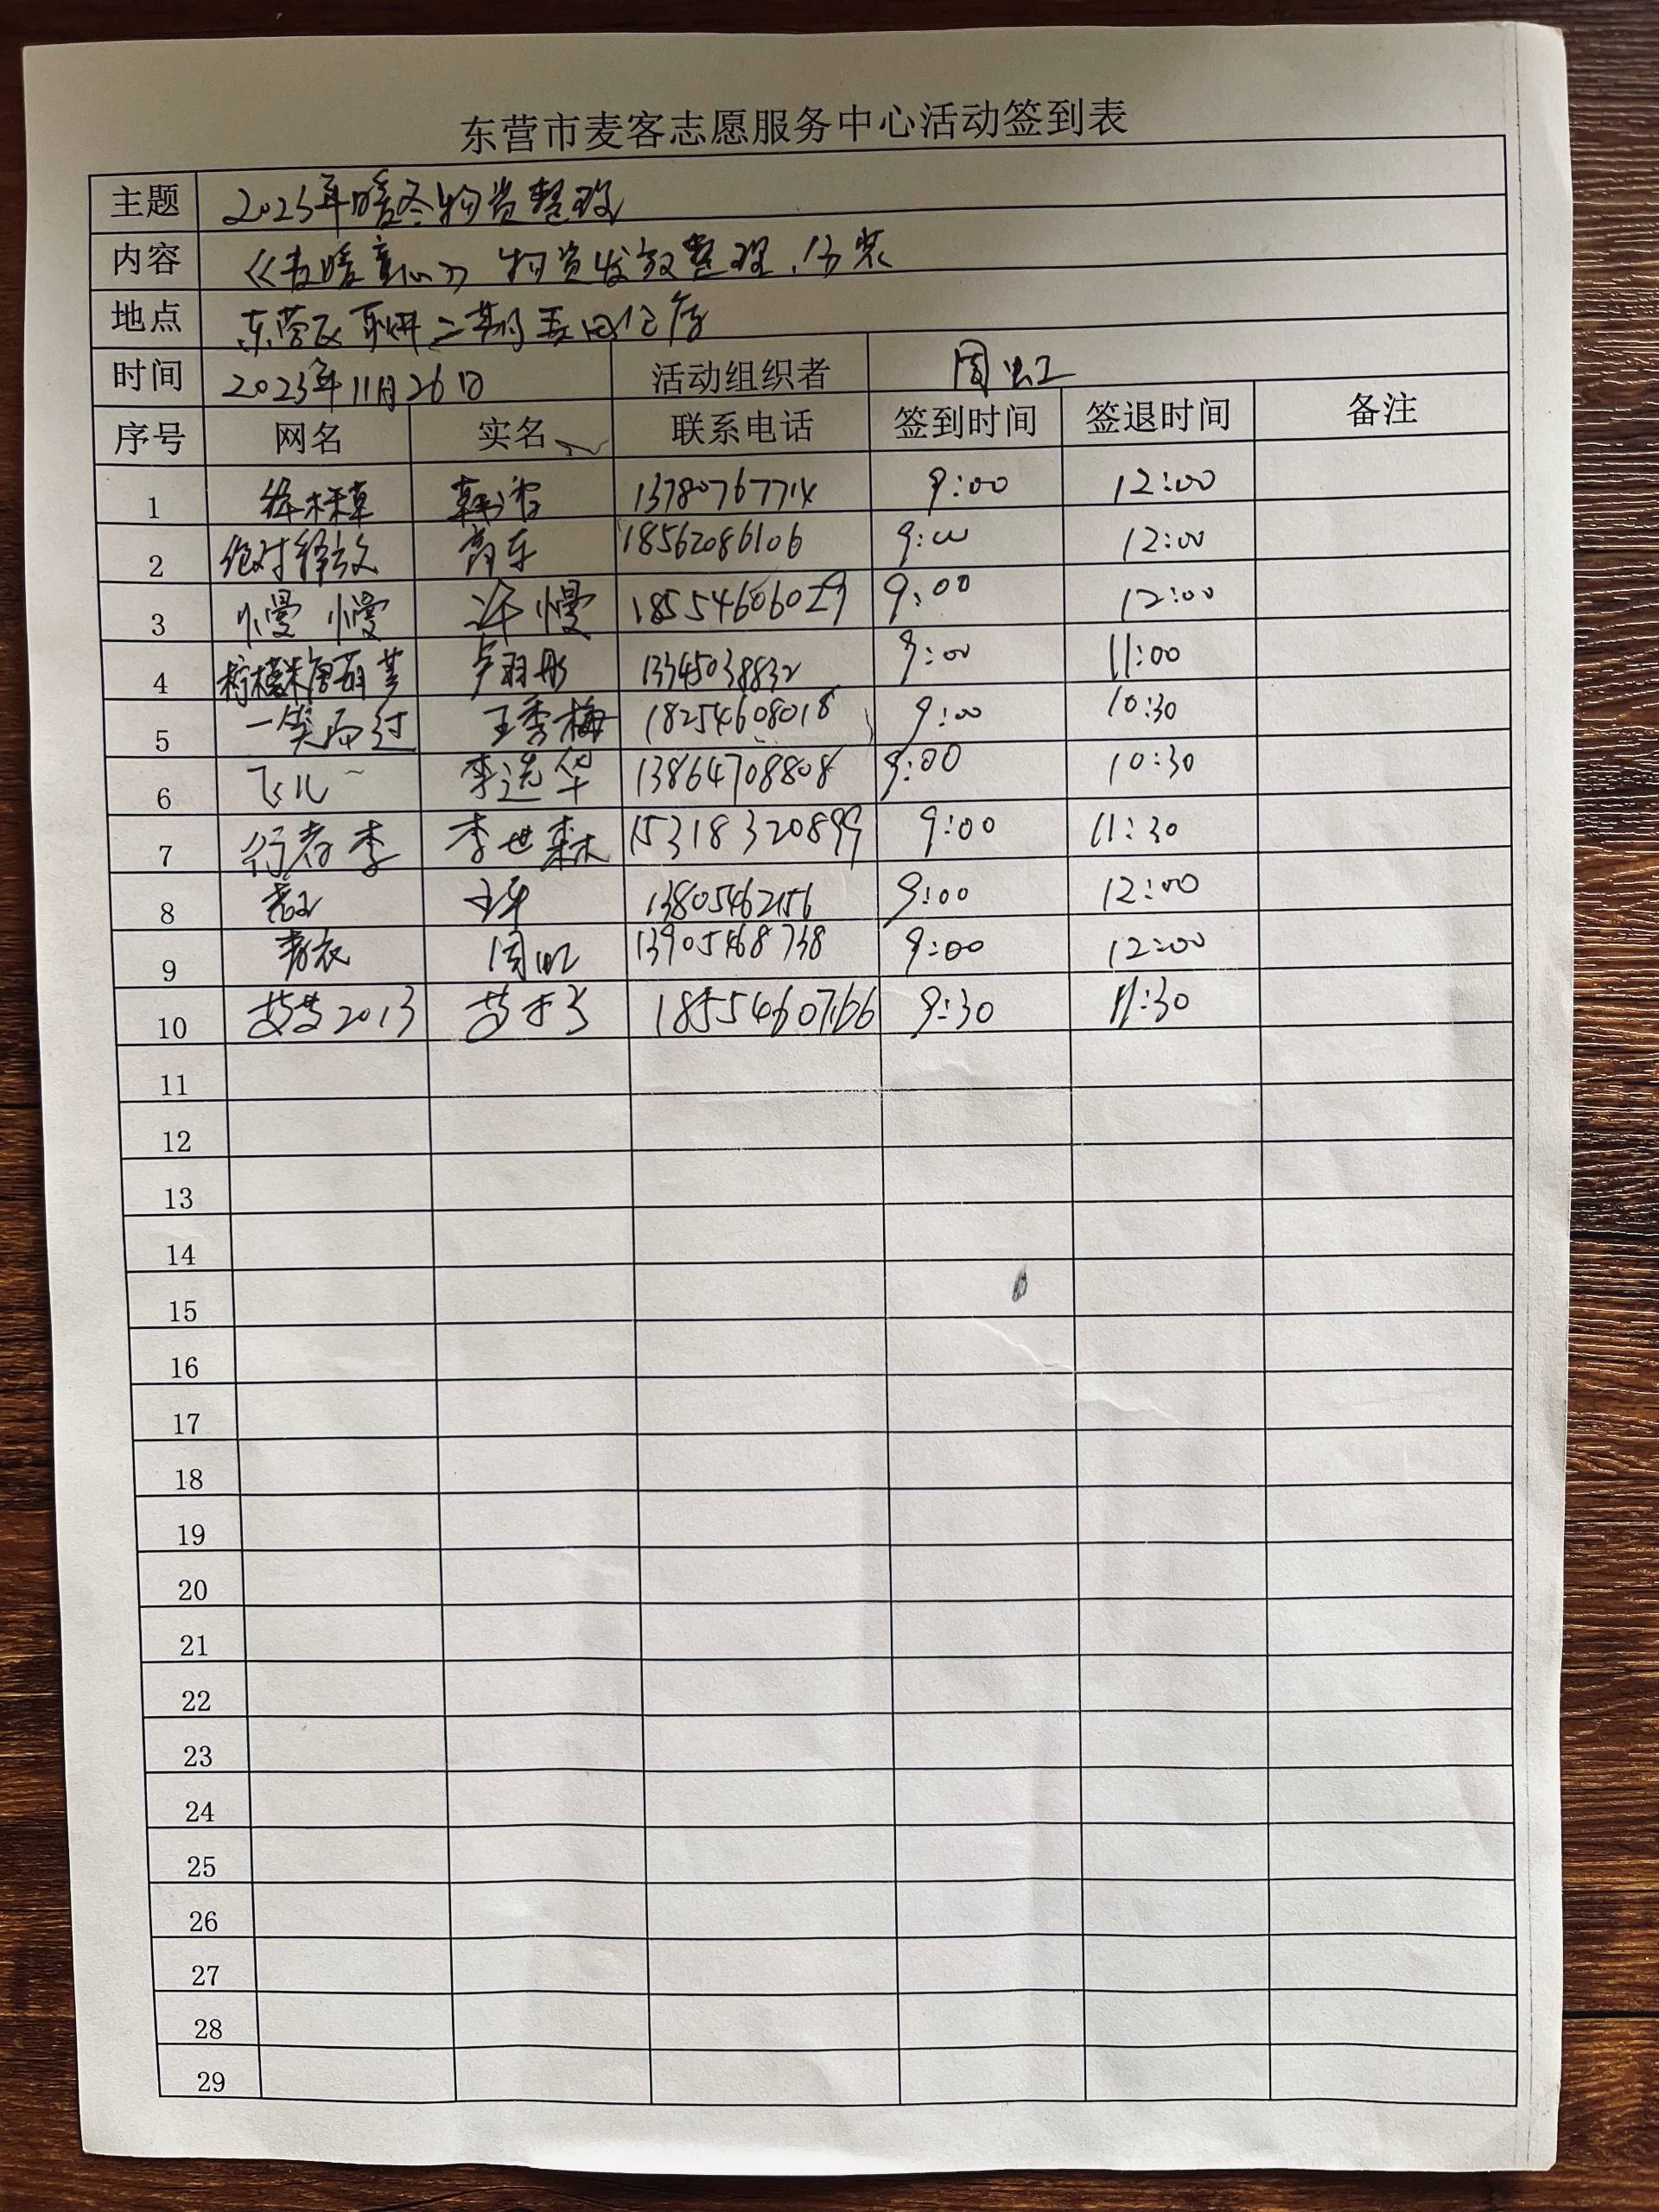 东营市麦客志愿服务中心活动签到表
主题 2023年暖冬物资整理
内容 《麦暖童心》物资发放整理、分装
地点 东营区 二期麦田仓库
时间 2023年11月26日 活动组织者 周虹
序号 网名 实名 联系电话 签到时间 签退时间 备注
1 13780767714 9:00 12:00
2 绝对释放 高东 18562086106 9:00 12:00
3 慢慢 许慢 18554606029 9:00 12:00
4 卢羽彤 13345038832 9:00 11:00
5 一笑而过 王秀梅 18254608018 9:00 10:30
6 飞儿~ 李选华 13864708808 9:00 10:30
7 行者李 李世森 15318320899 9:00 11:30
8 13805462156 9:00 12:00
9 青衣 周虹 13905468738 9:00 12:00
10 2013 18554607166 9:30 11:30
11
12
13
14
15
16
17
18
19
20
21
22
23
24
25
26
27
28
29